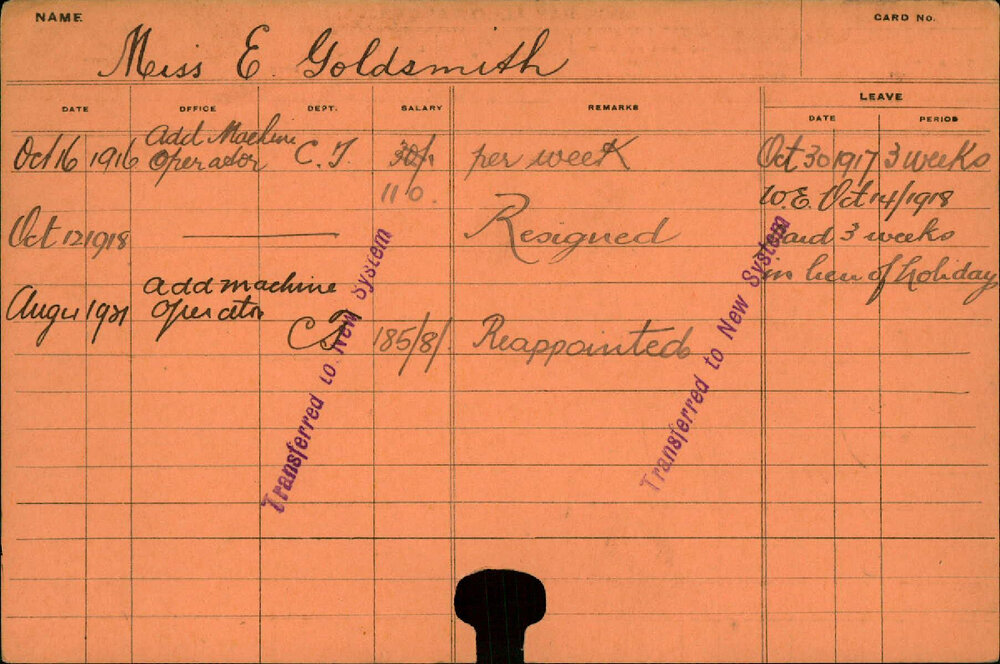 NAME
CARD No.
Miss E Goldsmith
DATE OFFICE DEPT. SALARY REMARKS LEAVE
DATE PERIOD
Oct 16 1916 Add Machine Operator C. T. 30/- per week Oct 30 1917 3 weeks
110. W.E. Oct 14/1918
Oct 12 1918 Resigned Paid 3 weeks
in lieu of holiday
Aug 1921 add machine Operator
CT 185/8/- Reappointed
Transferred to New System
Transferred to New System